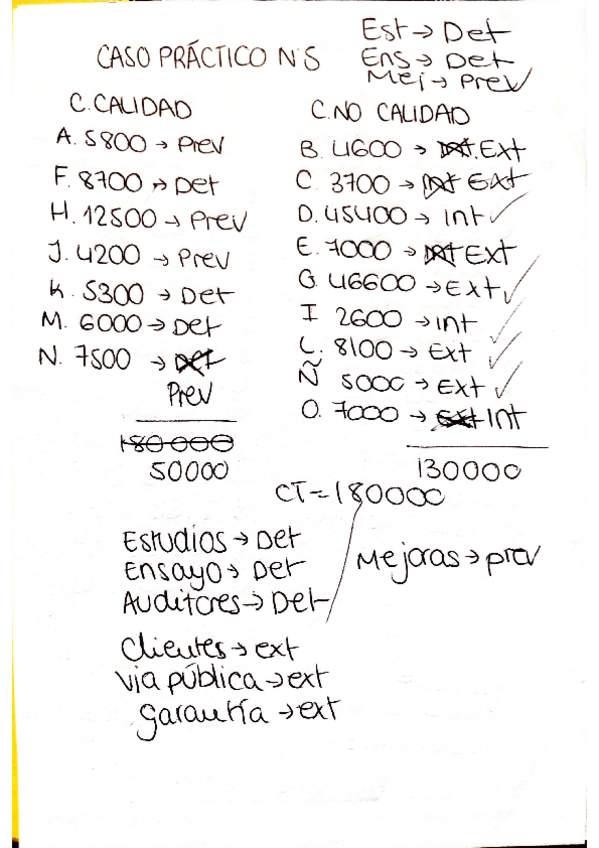 Est → Det
CASO PRÁCTICO Nº5
Ens → Det
Mej → Prev
C. CALIDAD
A. 5800 → Prev
F. 8700 → Det
H. 12500 → Prev
J. 4200 → Prev
K. 5300 → Det
M. 6000 → Det
N. 7500 → Det
Prev
180000
50000
C. NO CALIDAD
B. 4600 → Int. Ext
C. 3700 → Int Ext
D. 45400 → Int ✓
E. 7000 → Int Ext
G 46600 → Ext ✓
I 2600 → int
L. 8100 → Ext
Ñ 5000 → Ext ✓
O. 7000 → Ext Int
130000
CT = 180000
Estudios → Det
Ensayo → Det
Auditores → Det
Mejoras → prev
Clientes → ext
Via pública → ext
garantía → ext